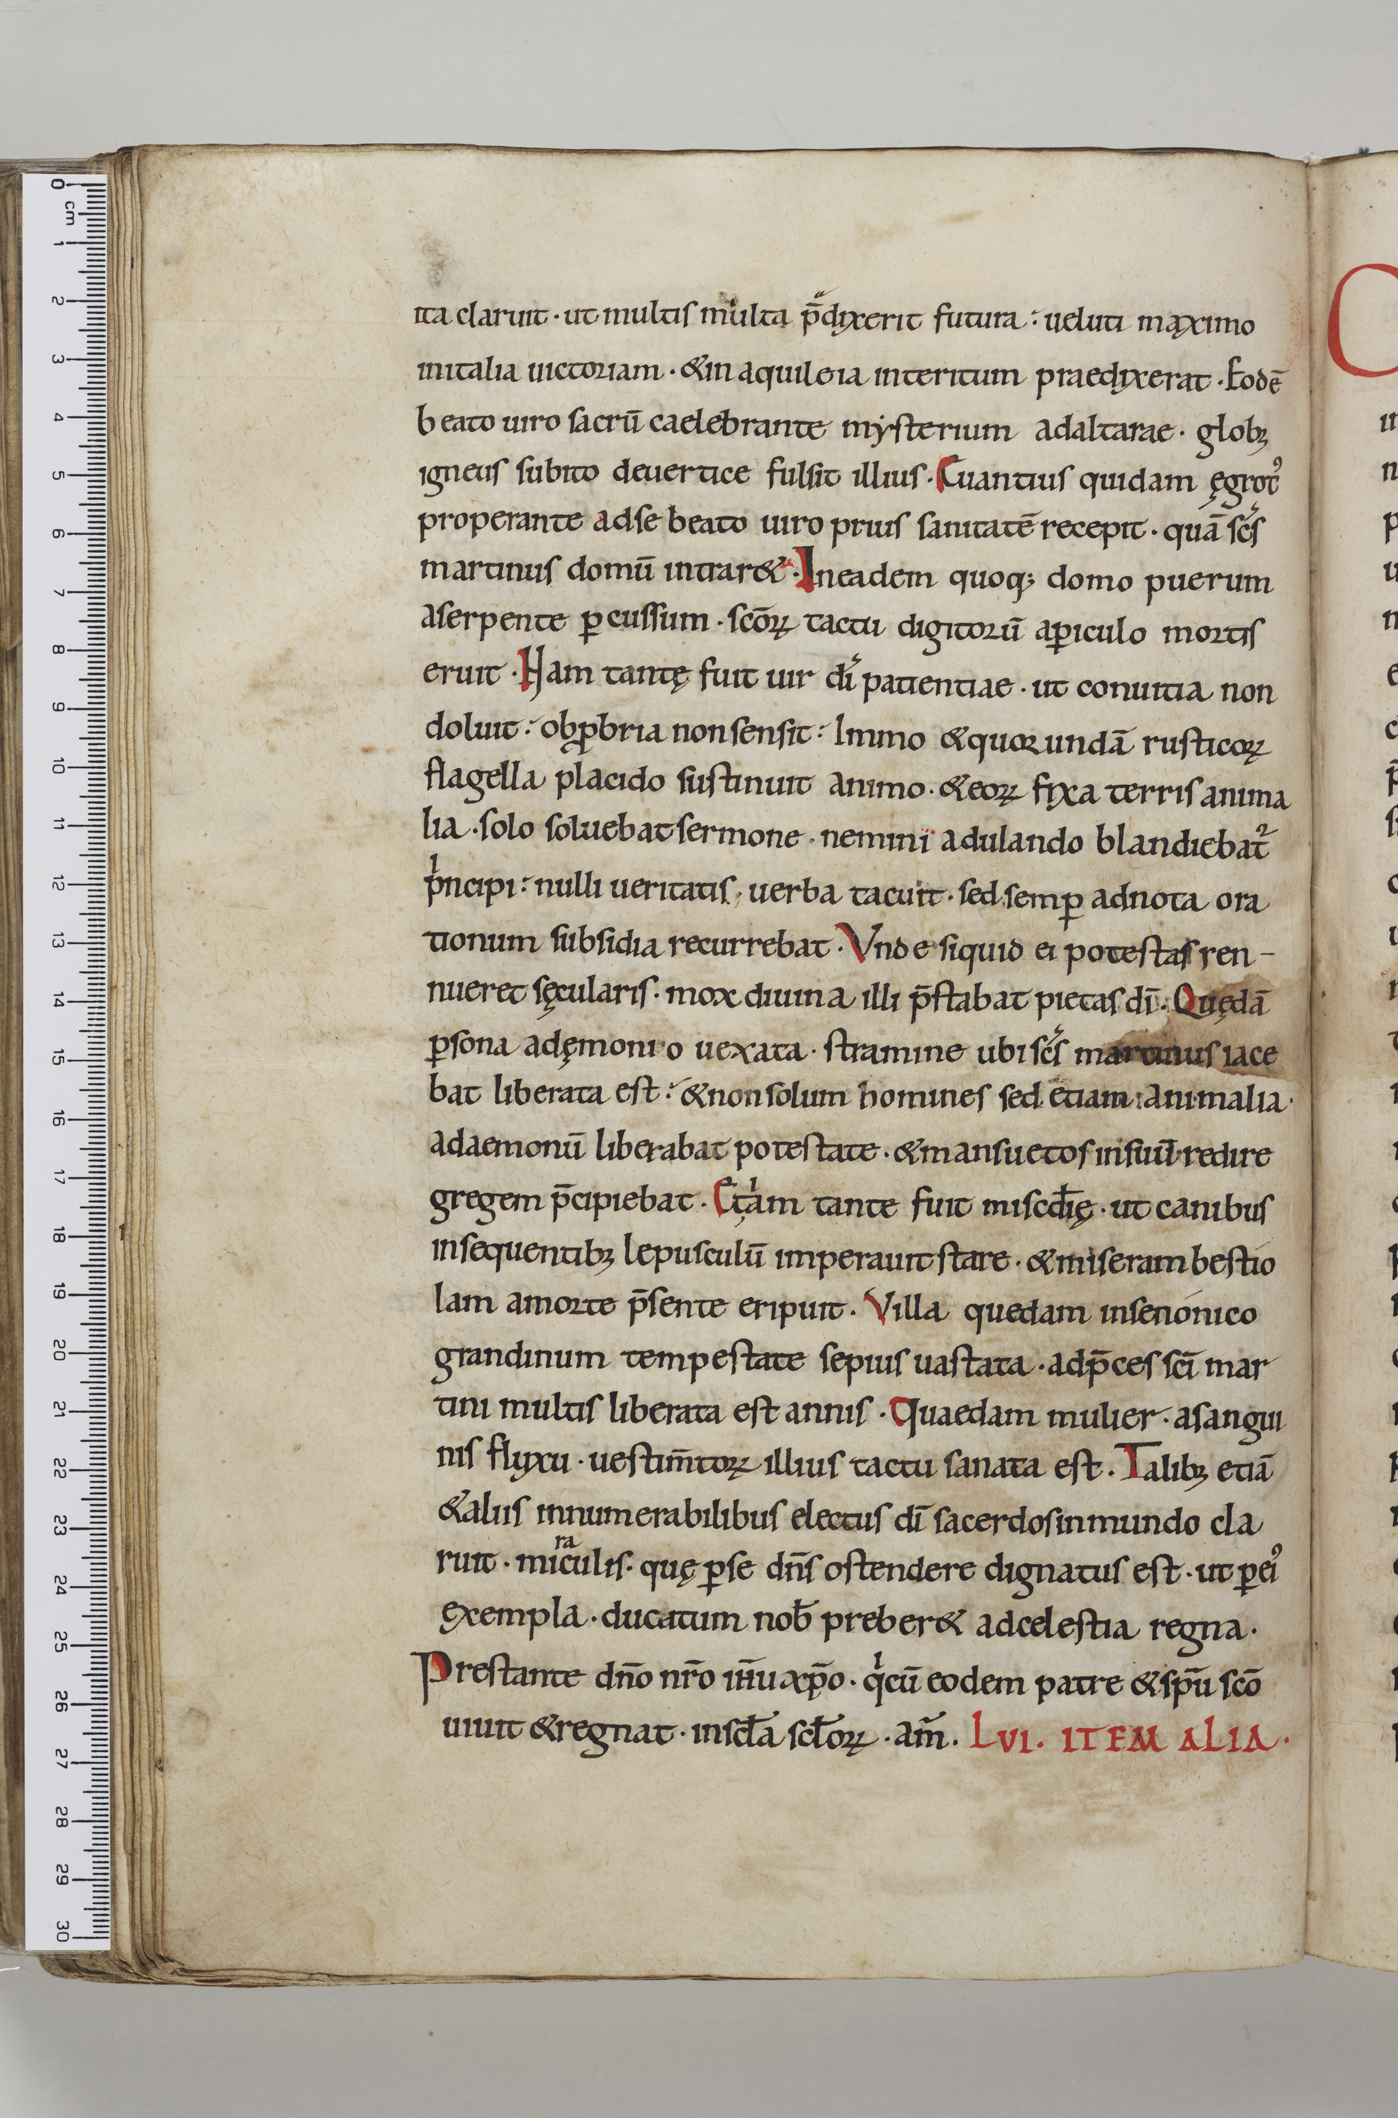 ita claruit · ut multis multa p̄dixerit futura : ueluti maximo
initalia uictoriam · &in aquileia interitum praedixerat · Eodē
beato uiro sacrū caelebrante mẏsterium adaltarae · globꝫ
igneus subito deuertice fulsit illius · Euantius quidam ęgrotꝰ
properante adse beato uiro prius sanitatē recepit · quā sc̄s
martinus domū intrar& · Ineadem quoqꝫ domo puerum
aserpente ꝑcussum · sc̄oꝝ tactu digitorū aꝑiculo mortis
eruit · Nam tantę fuit uir dī patientiae · ut conuitia non
doluit : obꝓbria nonsensit : Immo &quorundā rusticoꝝ
flagella placido sustinuit animo · &eoꝝ fixa terris anima
lia · solo soluebat sermone · nemini adulando blandiebat᷑
pͥncipi : nulli ueritatis · uerba tacuit · sed semꝑ adnota ora
tionum subsidia recurrebat · Vnde siquid ei potestas ren-
nueret sęcularis · mox diuina illi p̄stabat pietas dī · Quędā
ꝑsona adęmonio uexata · stramine ubi sc̄s martinus iace
bat liberata est : &nonsolum homines sed etiam animalia ·
adaemonū liberabat potestate · &mansuetos insuū redire
gregem p̄cipiebat · Etiam tante fuit misc̄dię · ut canibus
insequentibꝫ lepusculū imperauit stare · &miseram bestio
lam amorte p̄sente eripuit · Villa quedam insenonico
grandinum tempestate sepius uastata · adp̄ces sc̄i mar
tini multis liberata est annis · Quaedam mulier · asangui
nis fluxu · uestim̄toꝝ illius tactu sanata est · Talibꝫ etiā
&aliis innumerabilibus electus dī sacerdos inmundo cla
ruit · miraculis · quę ꝑse dn̄s ostendere dignatus est · ut ꝑeiꝰ
exempla · ducatum nob̄ preber& adcelestia regna ·
Prestante dn̄o nr̄o ih̄u xp̄o · qͥcū eodem patre &sp̄u sc̄o
uiuit &regnat · insc̄la sc̄loꝝ · am̄ . LVI . ITEM ALIA .